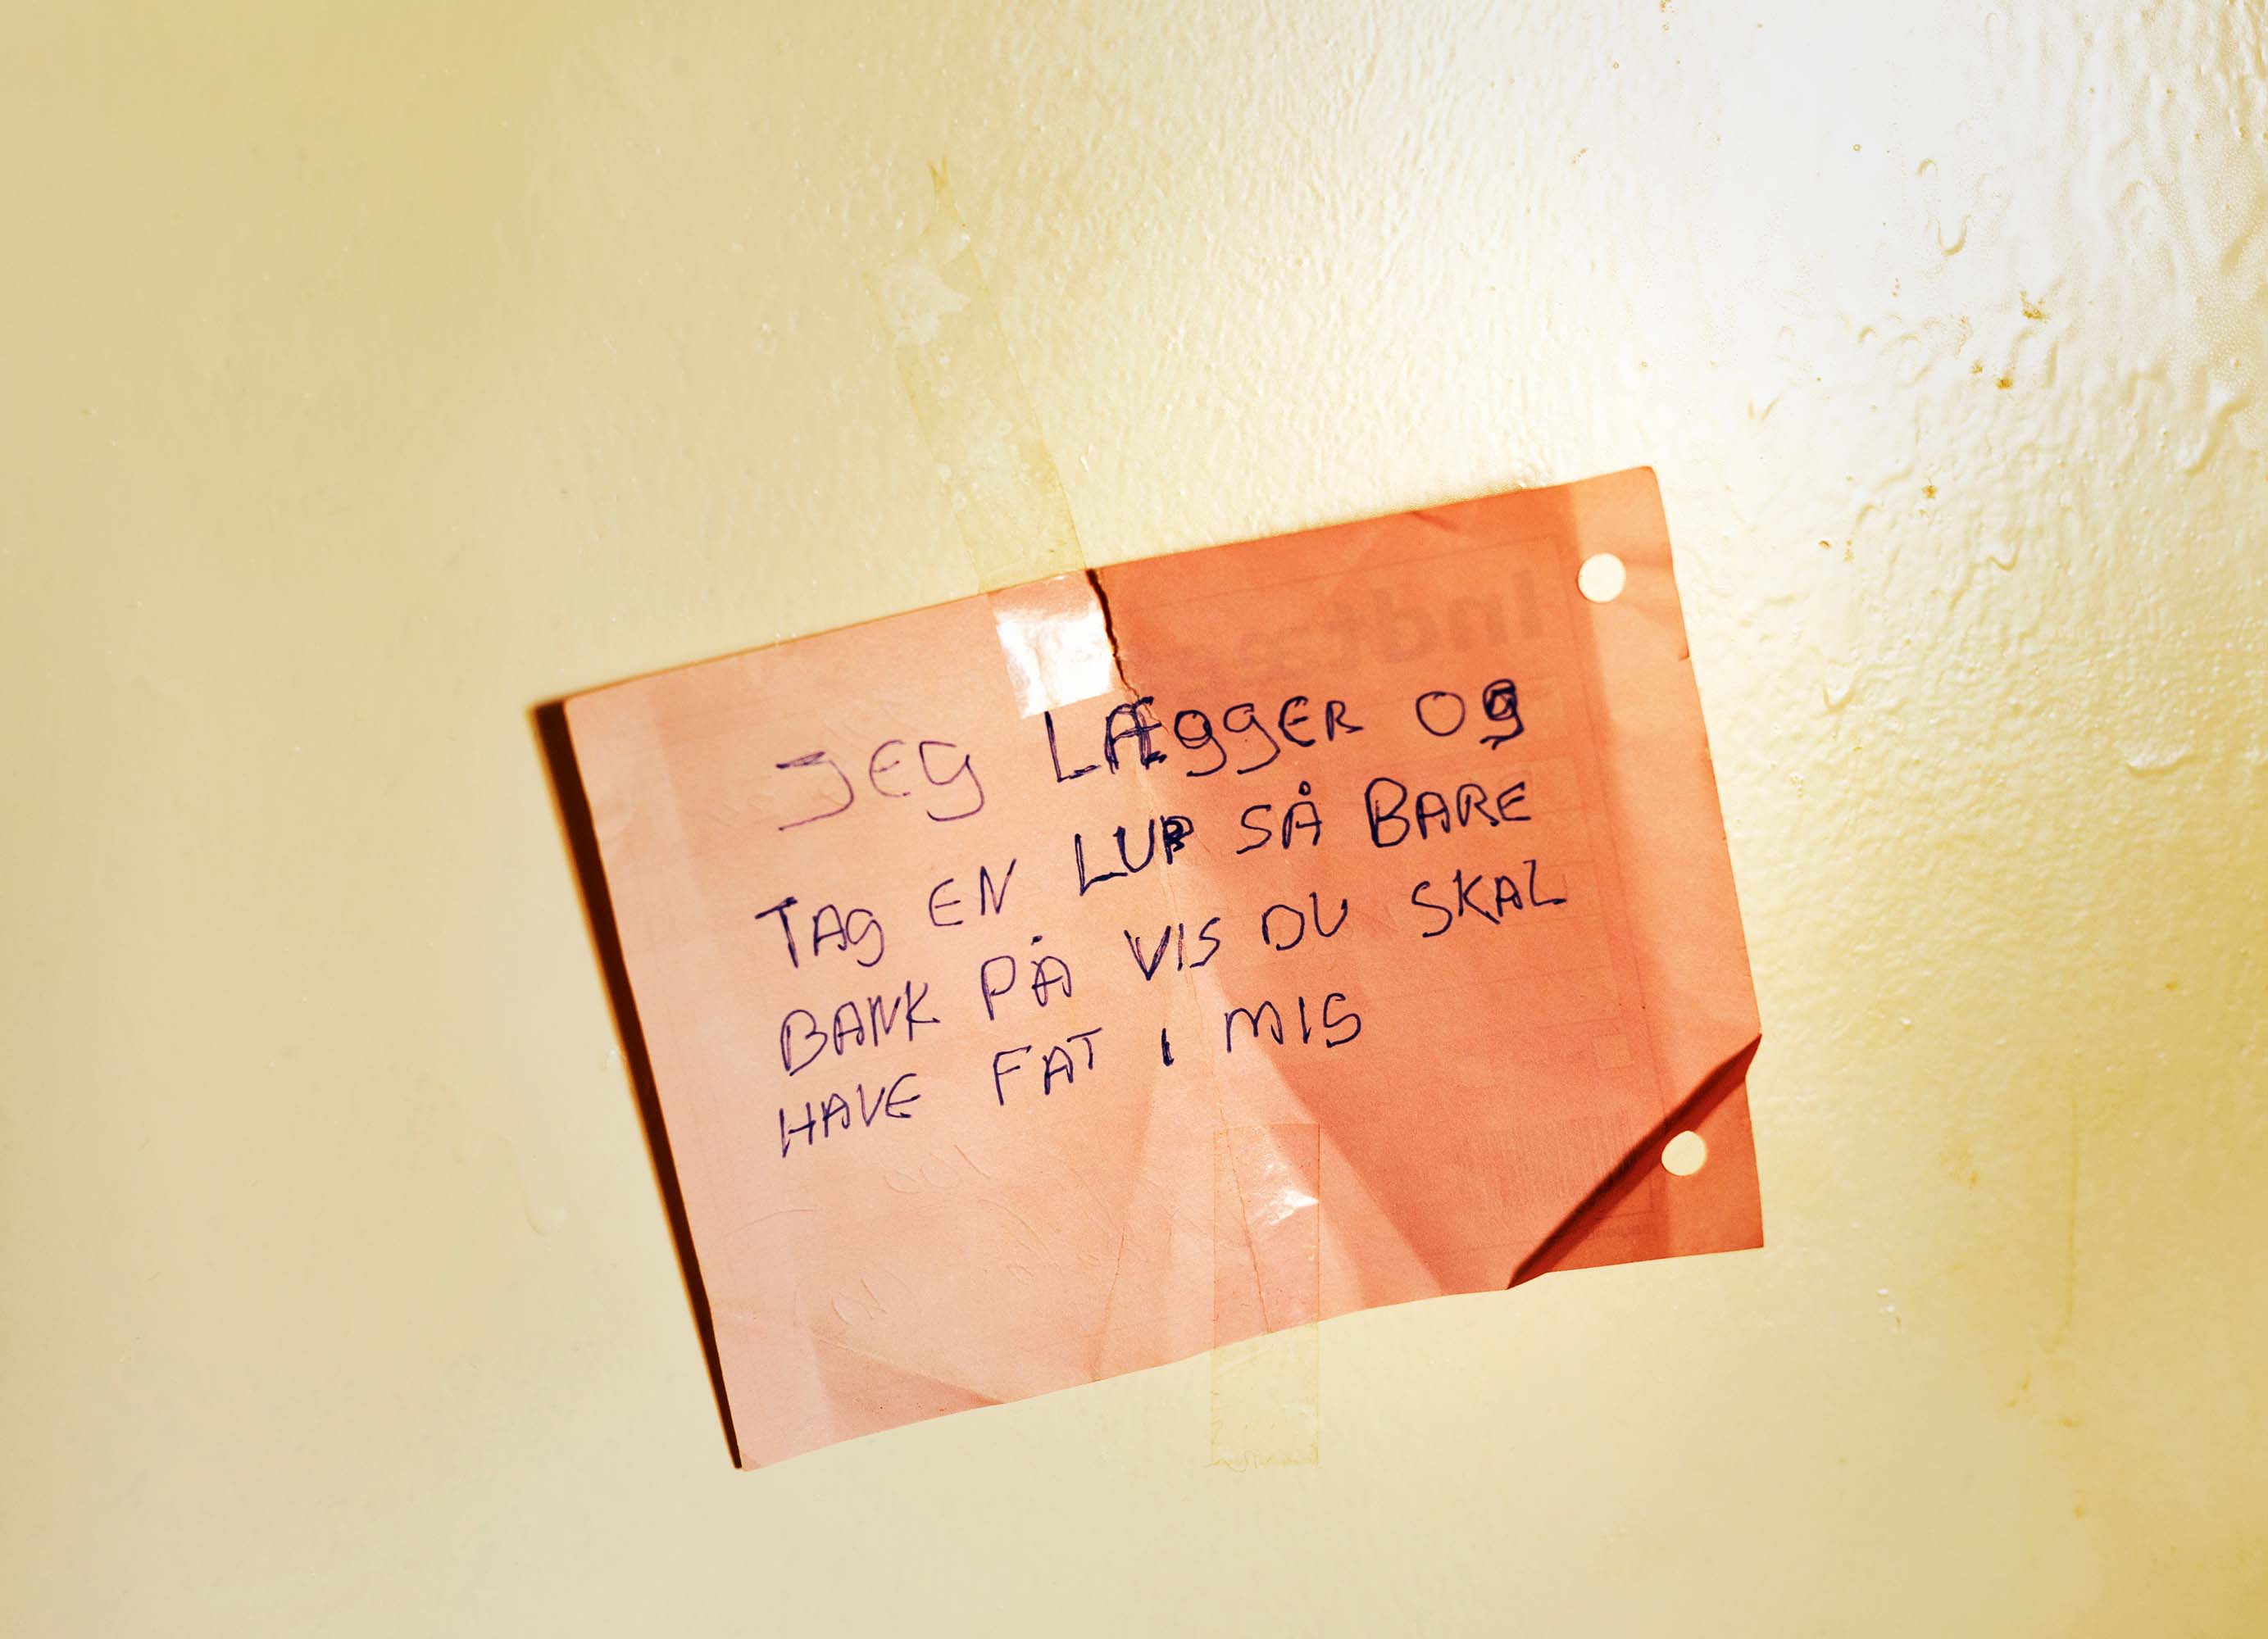 JEG LÆGGER OG
TAG EN LUR SÅ BARE
BANK PÅ VIS DU SKAL
HAVE FAT I MIG